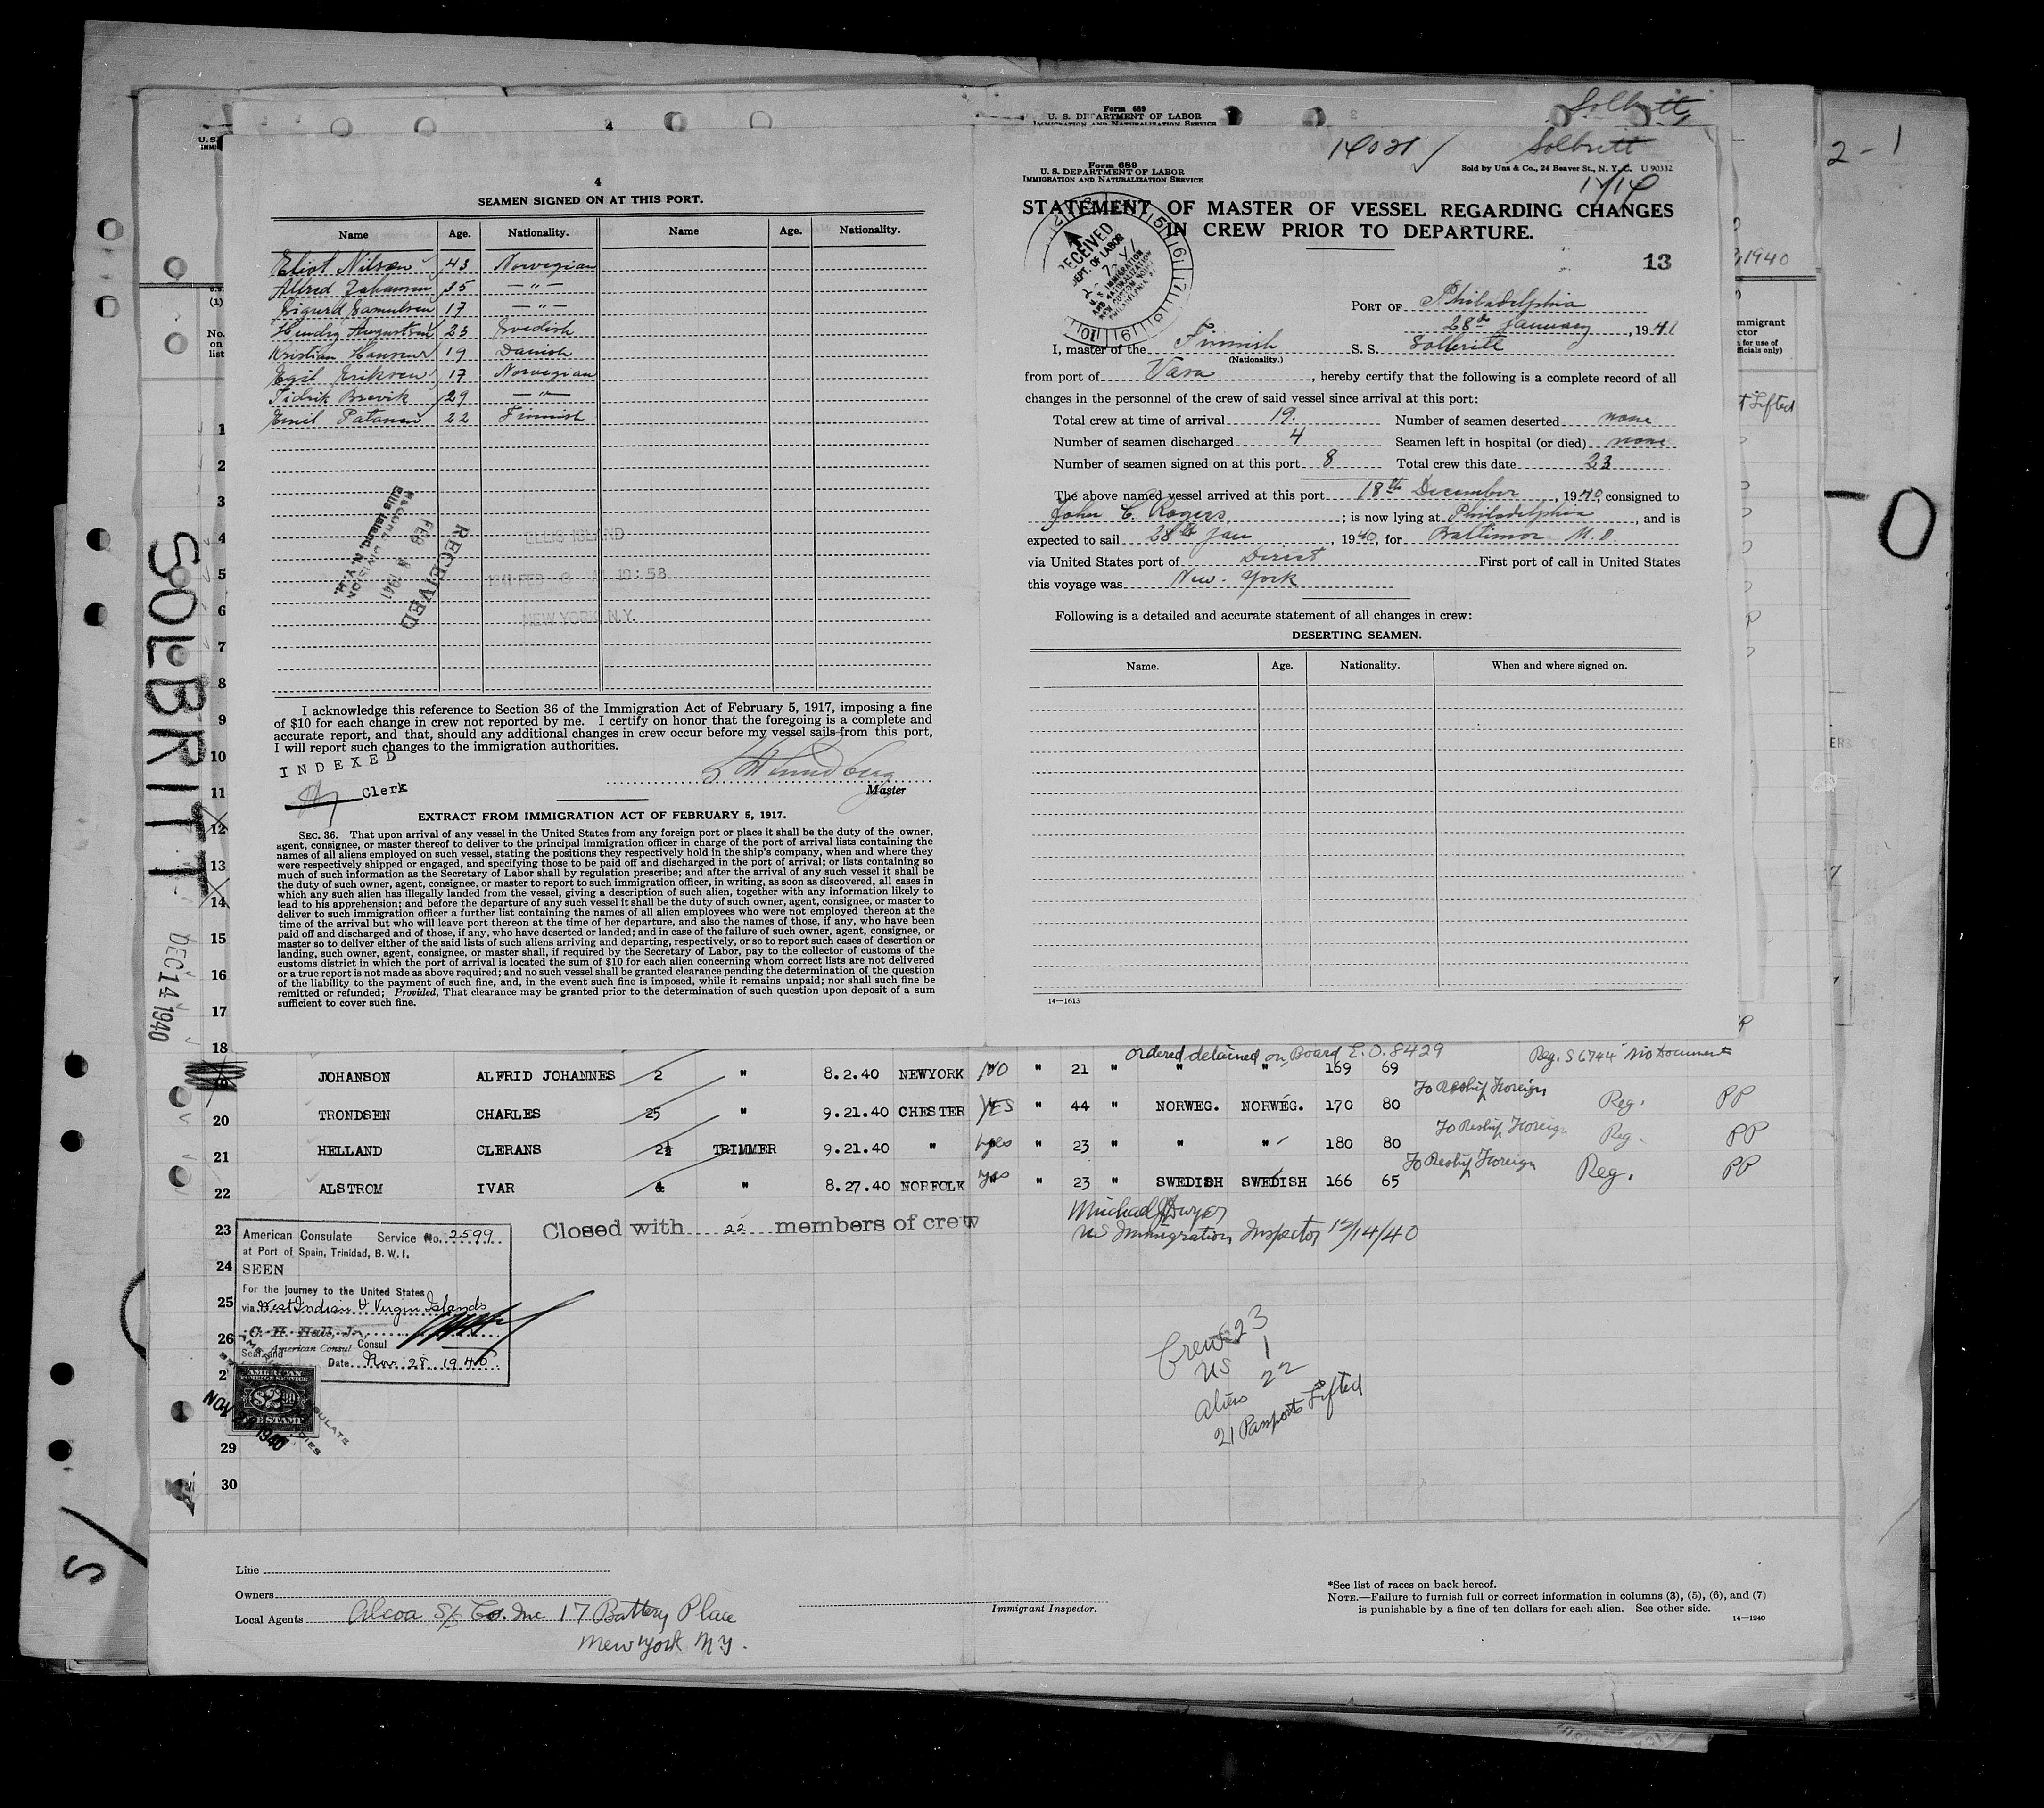 Form 689
U. S. DEPARTMENT OF LABOR
IMMIGRATION AND NATURALIZATION SERVICE
Solbritt
2-1
4
SEAMEN SIGNED ON AT THIS PORT.
Name Age. Nationality. Name Age. Nationality.
Eliot Nilsen 43 Norwegian
Alfred Johansen 35 — " —
Sigurd Samuelsen 17 — " —
Hendry Augustsen 23 Svedish
Kristian Hansen 19 Danish
Egil Eriksen 17 Norwegian
Fidrik Brevik 29 — " —
Emil Patanen 22 Finnish
RECEIVED
FEB 8 1941
RECORD DIVISION
Ellis Island, N.Y.H.
ELLIS ISLAND
1941 FEB 8 AM 10:58
NEW YORK, N.Y.
I acknowledge this reference to Section 36 of the Immigration Act of February 5, 1917, imposing a fine
of $10 for each change in crew not reported by me. I certify on honor that the foregoing is a complete and
accurate report, and that, should any additional changes in crew occur before my vessel sails from this port,
I will report such changes to the immigration authorities.
INDEXED
Clerk
Master
EXTRACT FROM IMMIGRATION ACT OF FEBRUARY 5, 1917.
SEC. 36. That upon arrival of any vessel in the United States from any foreign port or place it shall be the duty of the owner,
agent, consignee, or master thereof to deliver to the principal immigration officer in charge of the port of arrival lists containing the
names of all aliens employed on such vessel, stating the positions they respectively hold in the ship's company, when and where they
were respectively shipped or engaged, and specifying those to be paid off and discharged in the port of arrival; or lists containing so
much of such information as the Secretary of Labor shall by regulation prescribe; and after the arrival of any such vessel it shall be
the duty of such owner, agent, consignee, or master to report to such immigration officer, in writing, as soon as discovered, all cases in
which any such alien has illegally landed from the vessel, giving a description of such alien, together with any information likely to
lead to his apprehension; and before the departure of any such vessel it shall be the duty of such owner, agent, consignee, or master to
deliver to such immigration officer a further list containing the names of all alien employees who were not employed thereon at the
time of the arrival but who will leave port thereon at the time of her departure, and also the names of those, if any, who have been
paid off and discharged and of those, if any, who have deserted or landed; and in case of the failure of such owner, agent, consignee, or
master so to deliver either of the said lists of such aliens arriving and departing, respectively, or so to report such cases of desertion or
landing, such owner, agent, consignee, or master shall, if required by the Secretary of Labor, pay to the collector of customs of the
customs district in which the port of arrival is located the sum of $10 for each alien concerning whom correct lists are not delivered
or a true report is not made as above required; and no such vessel shall be granted clearance pending the determination of the question
of the liability to the payment of such fine, and, in the event such fine is imposed, while it remains unpaid; nor shall such fine be
remitted or refunded; Provided, That clearance may be granted prior to the determination of such question upon deposit of a sum
sufficient to cover such fine.
Form 689
U. S. DEPARTMENT OF LABOR
IMMIGRATION AND NATURALIZATION SERVICE
14021
Solbritt
Sold by Unz & Co., 24 Beaver St., N. Y. C. U 90332
1/14
STATEMENT OF MASTER OF VESSEL REGARDING CHANGES
IN CREW PRIOR TO DEPARTURE.
RECEIVED
DEPT. OF LABOR
U. S. IMMIGRATION
AND NATURALIZATION
PHILADELPHIA
13
PORT OF Philadelphia
28th January, 1941
I, master of the Finnish S. S. Solbritt
(Nationality.)
from port of Vasa, hereby certify that the following is a complete record of all
changes in the personnel of the crew of said vessel since arrival at this port:
Total crew at time of arrival 19. Number of seamen deserted none
Number of seamen discharged 4 Seamen left in hospital (or died) none
Number of seamen signed on at this port 8 Total crew this date 23
The above named vessel arrived at this port 18th December, 1940, consigned to
John C. Rogers; is now lying at Philadelphia, and is
expected to sail 28th Jan, 1940, for Baltimor M.D.
via United States port of Direct First port of call in United States
this voyage was New-York
Following is a detailed and accurate statement of all changes in crew:
DESERTING SEAMEN.
Name. Age. Nationality. When and where signed on.
14—1613
SOLBRITT
DEC 14 1940
No. on list
1
2
3
4
5
6
7
8
9
10
11
12
13
14
15
16
17
18
ordered detained on Board E.O. 8429 Reg. S6744 No Document
19 JOHANSON ALFRID JOHANNES 2 " 8.2.40 NEWYORK NO " 21 " " " 169 69
20 TRONDSEN CHARLES 25 " 9.21.40 CHESTER YES " 44 " NORWEG. NORWEG. 170 80 To Reship Foreign Reg. PP
21 HELLAND CLERANS 2½ TRIMMER 9.21.40 " yes " 23 " " " 180 80 To Reship Foreign Reg. PP
22 ALSTROM IVAR 4 " 8.27.40 NORFOLK yes " 23 " SWEDISH SWEDISH 166 65 To Reship Foreign Reg. PP
23 Closed with 22 members of crew
Michael J Dwyer
US Immigration Inspector 12/14/40
American Consulate Service No. 2599
at Port of Spain, Trinidad, B. W. I.
24 SEEN
For the journey to the United States
25 via West Indian & Virgin Islands
26 C. H. Hall, Jr.
American Consul Consul
Seal and
Date Nov. 28 1940
AMERICAN
FOREIGN SERVICE
$2.00
FEE STAMP
NOV 28 1940
29
30
Crew 23
US 1
Alien 22
21 Passports Lifted
Line
Owners
Local Agents Alcoa S/S Co. Inc 17 Battery Place
New York NY.
Immigrant Inspector.
*See list of races on back hereof.
NOTE.—Failure to furnish full or correct information in columns (3), (5), (6), and (7)
is punishable by a fine of ten dollars for each alien. See other side.
14—1240